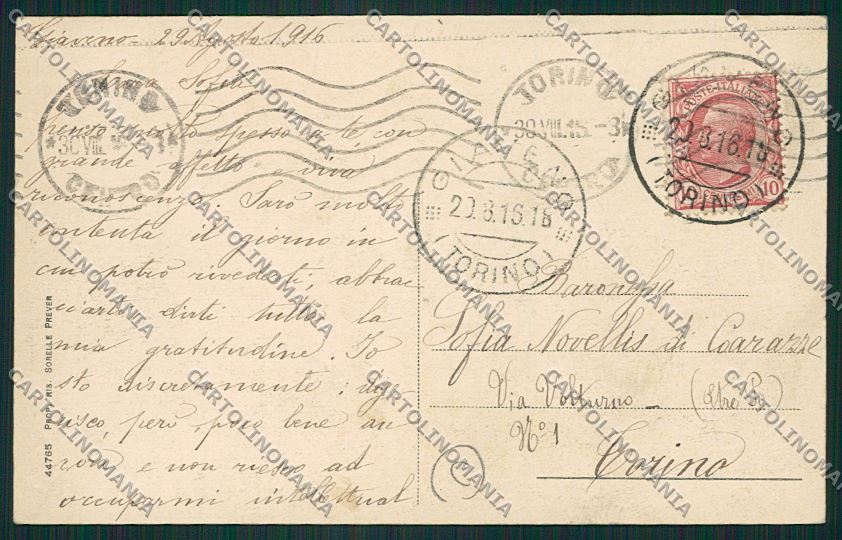 Giaveno - 29 Agosto 1916
Cara Sofia
penso molto spesso a te, con
grande affetto e viva
riconoscenza. Sarò molto
contenta il giorno in
cui potrò rivederti, abbrac
ciarti dirti tutta la
mia gratitudine. Io
sto discretamente: dige
risco, però, poco bene an
cora e non riesco ad
occuparmi intellettual
TORINO
30 VIII
CENTRO
TORINO
30 VIII 16 - 3
CENTRO
GIAVENO
29.8.16.18
(TORINO)
GIAVENO
29.8.16.18
(TORINO)
POSTE ITALIANE
10
Baronessa
Sofia Novellis di Coarazze
Via Volturno - (oltre Po)
No 1
Torino
44765 PROP. RIS. SORELLE PREVER
CARTOLINOMANIA